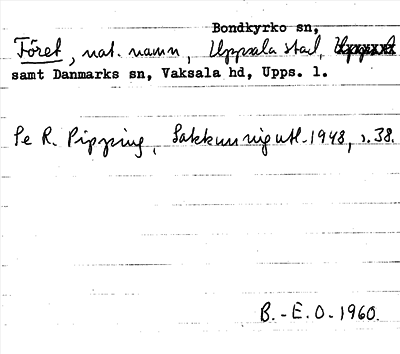 Bondkyrko sn,
Föret, nat. namn, Uppsala stad,
samt Danmarks sn, Vaksala hd, Upps. l.
Se R. Pipping, Sakkunnigutl. 1948, s. 38.
B.-E. O. 1960.